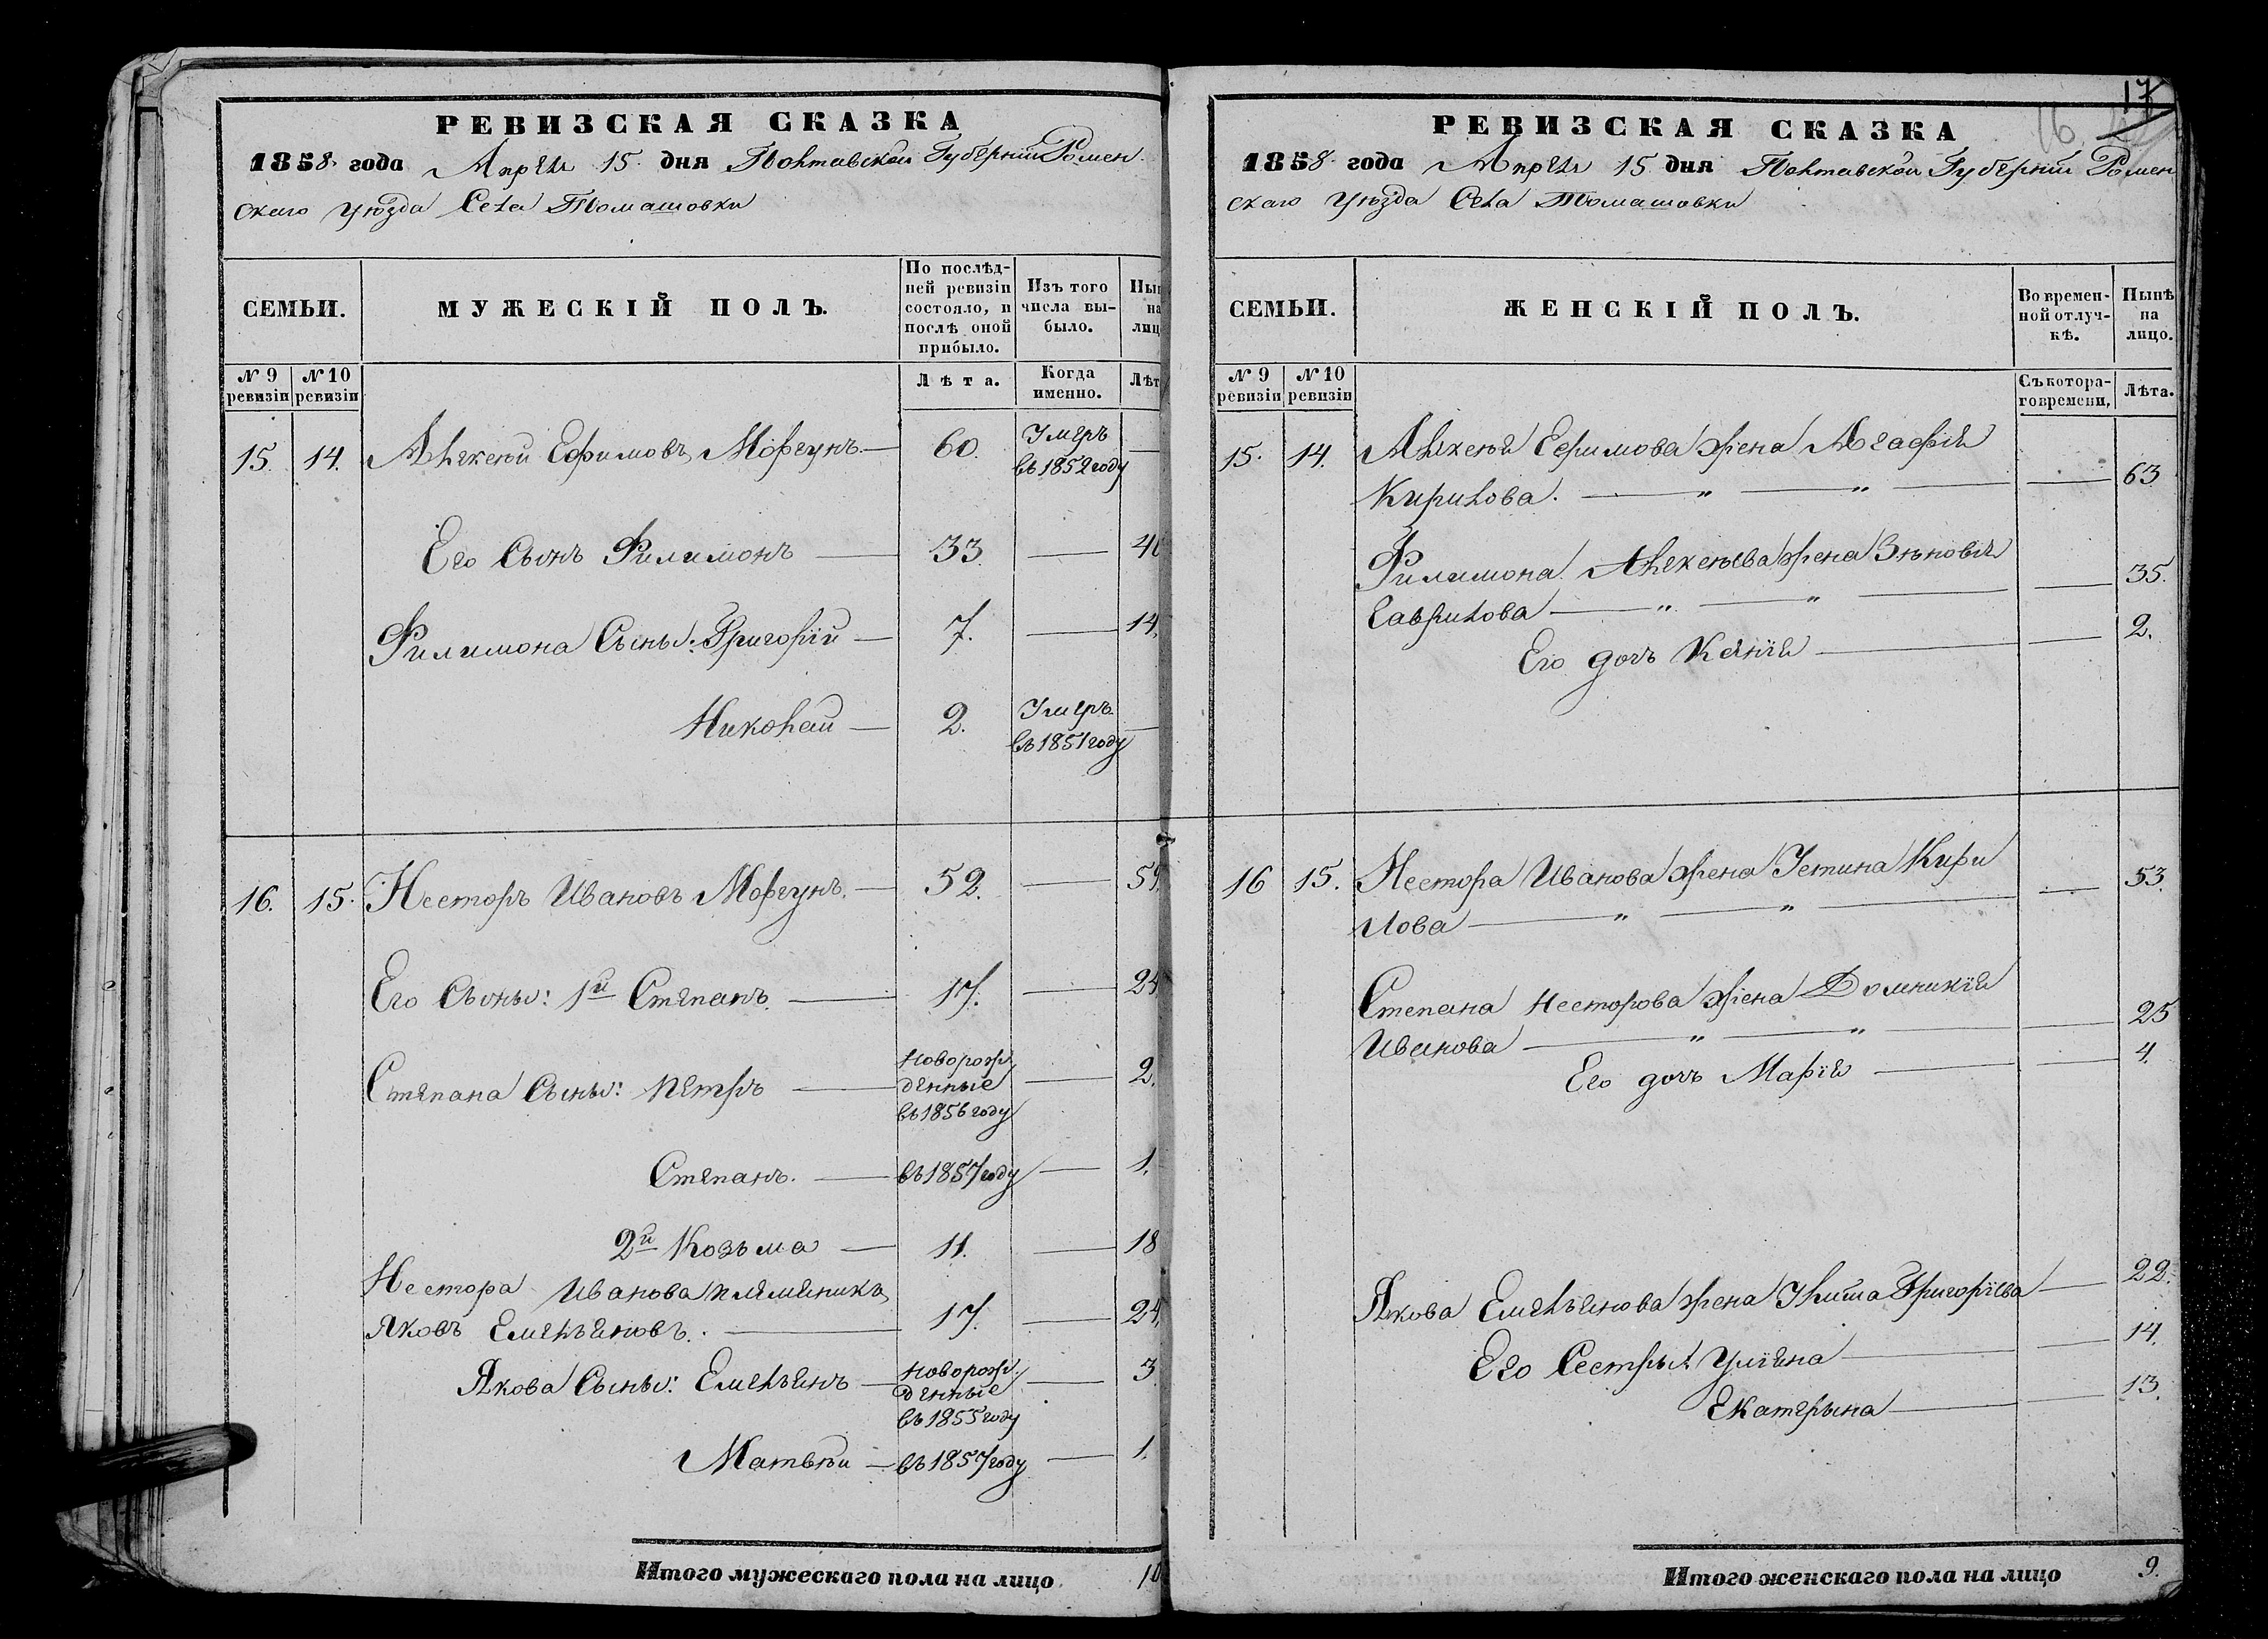 РЕВИЗСКАЯ СКАЗКА
1858 года Апреля 15 дня Полтавской Губерніи Ромен
скаго Уюзда Села Томашовки
СЕМЬИ.
МУЖЕСКІЙ ПОЛЪ.
По послѣд-
ней ревизіи
состояло, и
послѣ оной
прибыло.
Изъ того
числа вы-
было.
Ны
на
лиц
№ 9
ревизіи
№ 10
ревизіи
Лѣта.
Когда
именно.
Лѣт
15. 14. Алексей Ефимовъ Моргунъ — 60. Умеръ въ 1852 году —
Его Сынъ Филимонъ — 33. — 40
Филимона Сыны: Григорій — 7. — 14.
Николай — 2. Умеръ въ 1851 году —
16. 15. Несторъ Ивановъ Моргунъ. — 52. — 59.
Его Сыны: 1й Степанъ. — 17. — 24
Степана Сыны: Петръ — Новорож
денные
въ 1856 году — 2.
Степанъ. — въ 1857 году — 1.
2й Козьма — 11. — 18
Нестора Иванова племяникъ
Яковъ Емельяновъ. — 17. — 24.
Якова Сыны: Емельянъ — Новорож
денные
въ 1855 году — 3
Матвѣй — въ 1857 году — 1.
Итого мужескаго пола на лицо 10
17
16
РЕВИЗСКАЯ СКАЗКА
1858 года Апреля 15 дня Полтавской Губерніи Ромен
скаго Уюзда Села Томашовки
СЕМЬИ.
ЖЕНСКІЙ ПОЛЪ.
Во времен-
ной отлуч-
кѣ.
Нынѣ
на
лицо.
№ 9
ревизіи
№ 10
ревизіи
Съ котора-
го времени.
Лѣта.
15. 14. Алексея Ефимова жена Агафія
Кирилова. — " — " — — 63
Филимона Алексеева жена Зѣновія
Гаврилова — " — " — — 35.
Его дочь Ксенія — — 2.
16 15. Нестора Иванова жена Устина Кири
лова — " — " — — 53.
Степана Несторова жена Домникія
Иванова — " — " — — 25
Его дочь Марія — — 4.
Якова Емельянова жена Улита Григоріева — 22.
Его Сестры: Уліяна — — 14.
Екатерына — — 13.
Итого женскаго пола на лицо 9.